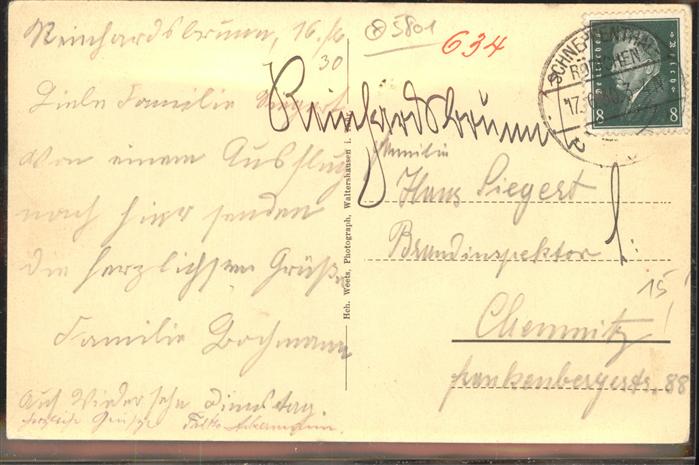 Reinhardsbrunn, 16./6.
30
Liebe Familie Siegert
Von einem Ausflug
nach hier senden
die herzlichsten Grüße
Familie Bochmann
Auf Wiedersehn Dienstag.
herzliche Grüsse
5801
634
Reinhardsbrunn
Hch. Weets, Photograph, Waltershausen i. Thür.
SCHNEPFENTHAL
RÖDICHEN
17.6.30
Deutsches Reich
8 8
Familie
Hans Siegert
Brandinspektor
Chemnitz
Frankenbergerstr. 88
15